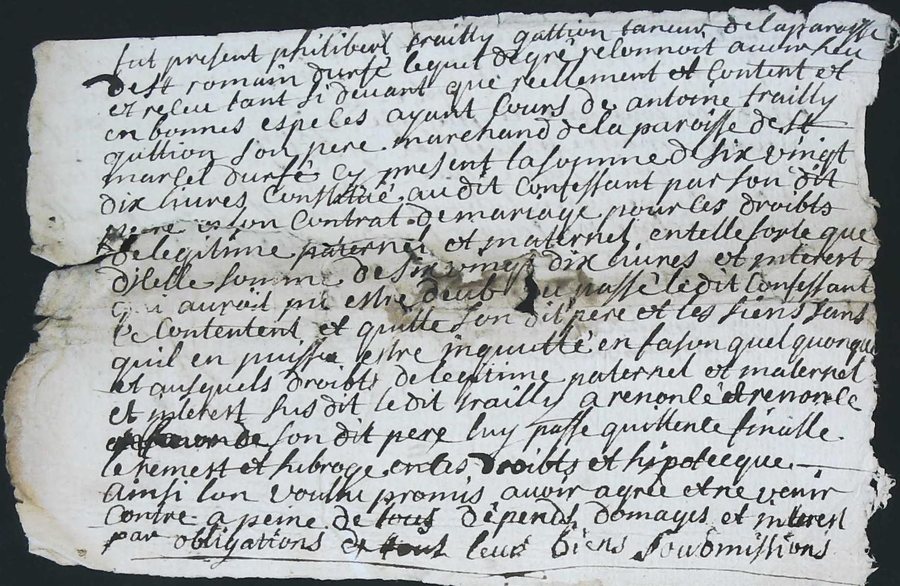 fut present philibert trailly gattion taneur de laparoisse
de st romain durfé lequel de gré reconnoit avoir heu
et receu tant si devant que reellement et content et
en bonnes especes ayant cours de antoine trailly
gattion son pere marchand de la paroisse de st
marcel durfé cy present la somme de six vingt
dix livres constitué audit confessant par son dit
pere en son contrat de mariage pour les droibts
de legitime paternel et maternel en telle sorte que
dicelle somme de six vingt dix livres et interest
qui auroit pu estre deub du passé ledit confessant
ce contentent et quitte son dit pere et les siens sans
quil en puisse estre inquietté en fason quelquonque
et ausquels droibts de legitime paternel et maternel
et interest susdit ledit trailly a renoncé et renonce
son dit pere luy passe quittence finalle
le remest et subroge en tes droibts et hipotecque
ainsi lon voullu promis avoir agreé et ne venir
contre a peine de tous dépends domages et interest
par obligations et tous leurs biens soubmissions